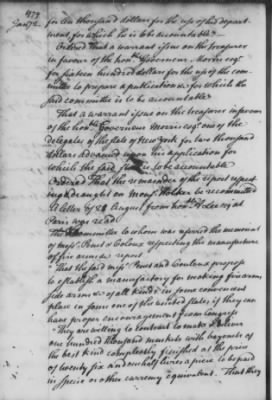 479
for ten thousand dollars for the use of his depart
ment for which he is to be accountable
Ordered That a warrant issue on the treasurer
in favour of the honble Governeur Morris esqr
for sixteen hundred dollars for the use of the com
mittee to prepare a publication & for which the
said committee is to be accountable
That a warrant issue on the treasurer in favour
of the honble Governeur Morris esqr one of the
delegates of the state of New York for two thousand
dollars advanced upon his application for
which the said state is to be accountable
Ordered That the remainder of the report respect
ing draughts on Monsr Holker be recommitted
A letter of 28 August from honble A Lee esqr at
Paris was read
The committee to whom was referred the memorial
of messrs Penet & Coloux respecting the manufacture
of fire arms report
That the said messrs Penet and Couloux propose
to establish a manufactory for making fire arms
side arms &c of all kinds in some convenient
place in some one of the united states if they can
have proper encouragement from Congress
They are willing to contract to make & deliver
one hundred thousand muskets with bayonets of
the best kind completely finished at the price
of twenty six and one half livres a piece to be paid
in specie or other currency equivalent. That they